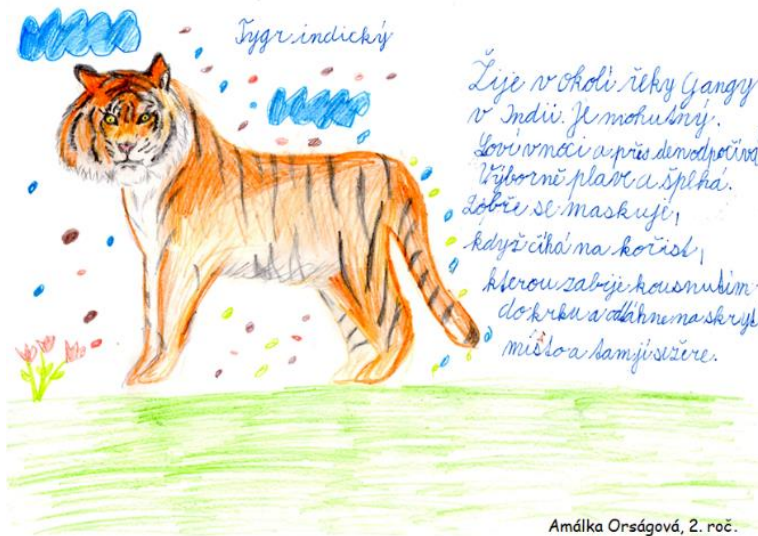 Tygr indický
Žije v okolí řeky Gangy
v Indii. Je mohutný.
Loví v noci a přes den odpočívá
Výborně plave a šplhá.
Dobře se maskuje,
když číhá na kořist,
kterou zabije kousnutím
do krku a odtáhne na skryt
místo a tam ji sežere.
Amálka Orságová, 2. roč.